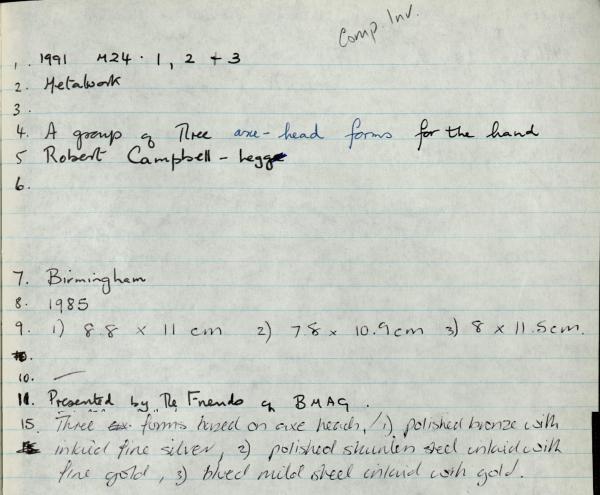 Comp. Inv.
1. 1991 M24 . 1, 2 + 3
2. Metalwork
3.
4. A group of Three axe-head forms for the hand
5 Robert Campbell-Legge
6.
7. Birmingham
8. 1985
9. 1) 8.8 x 11 cm 2) 7.8 x 10.9cm 3) 8 x 11.5cm.
10. —
11. Presented by The Friends of BMAG.
15. Three forms based on axe heads, 1) polished bronze with
inlaid fine silver, 2) polished stainless steel inlaid with
fine gold, 3) blued mild steel inlaid with gold.